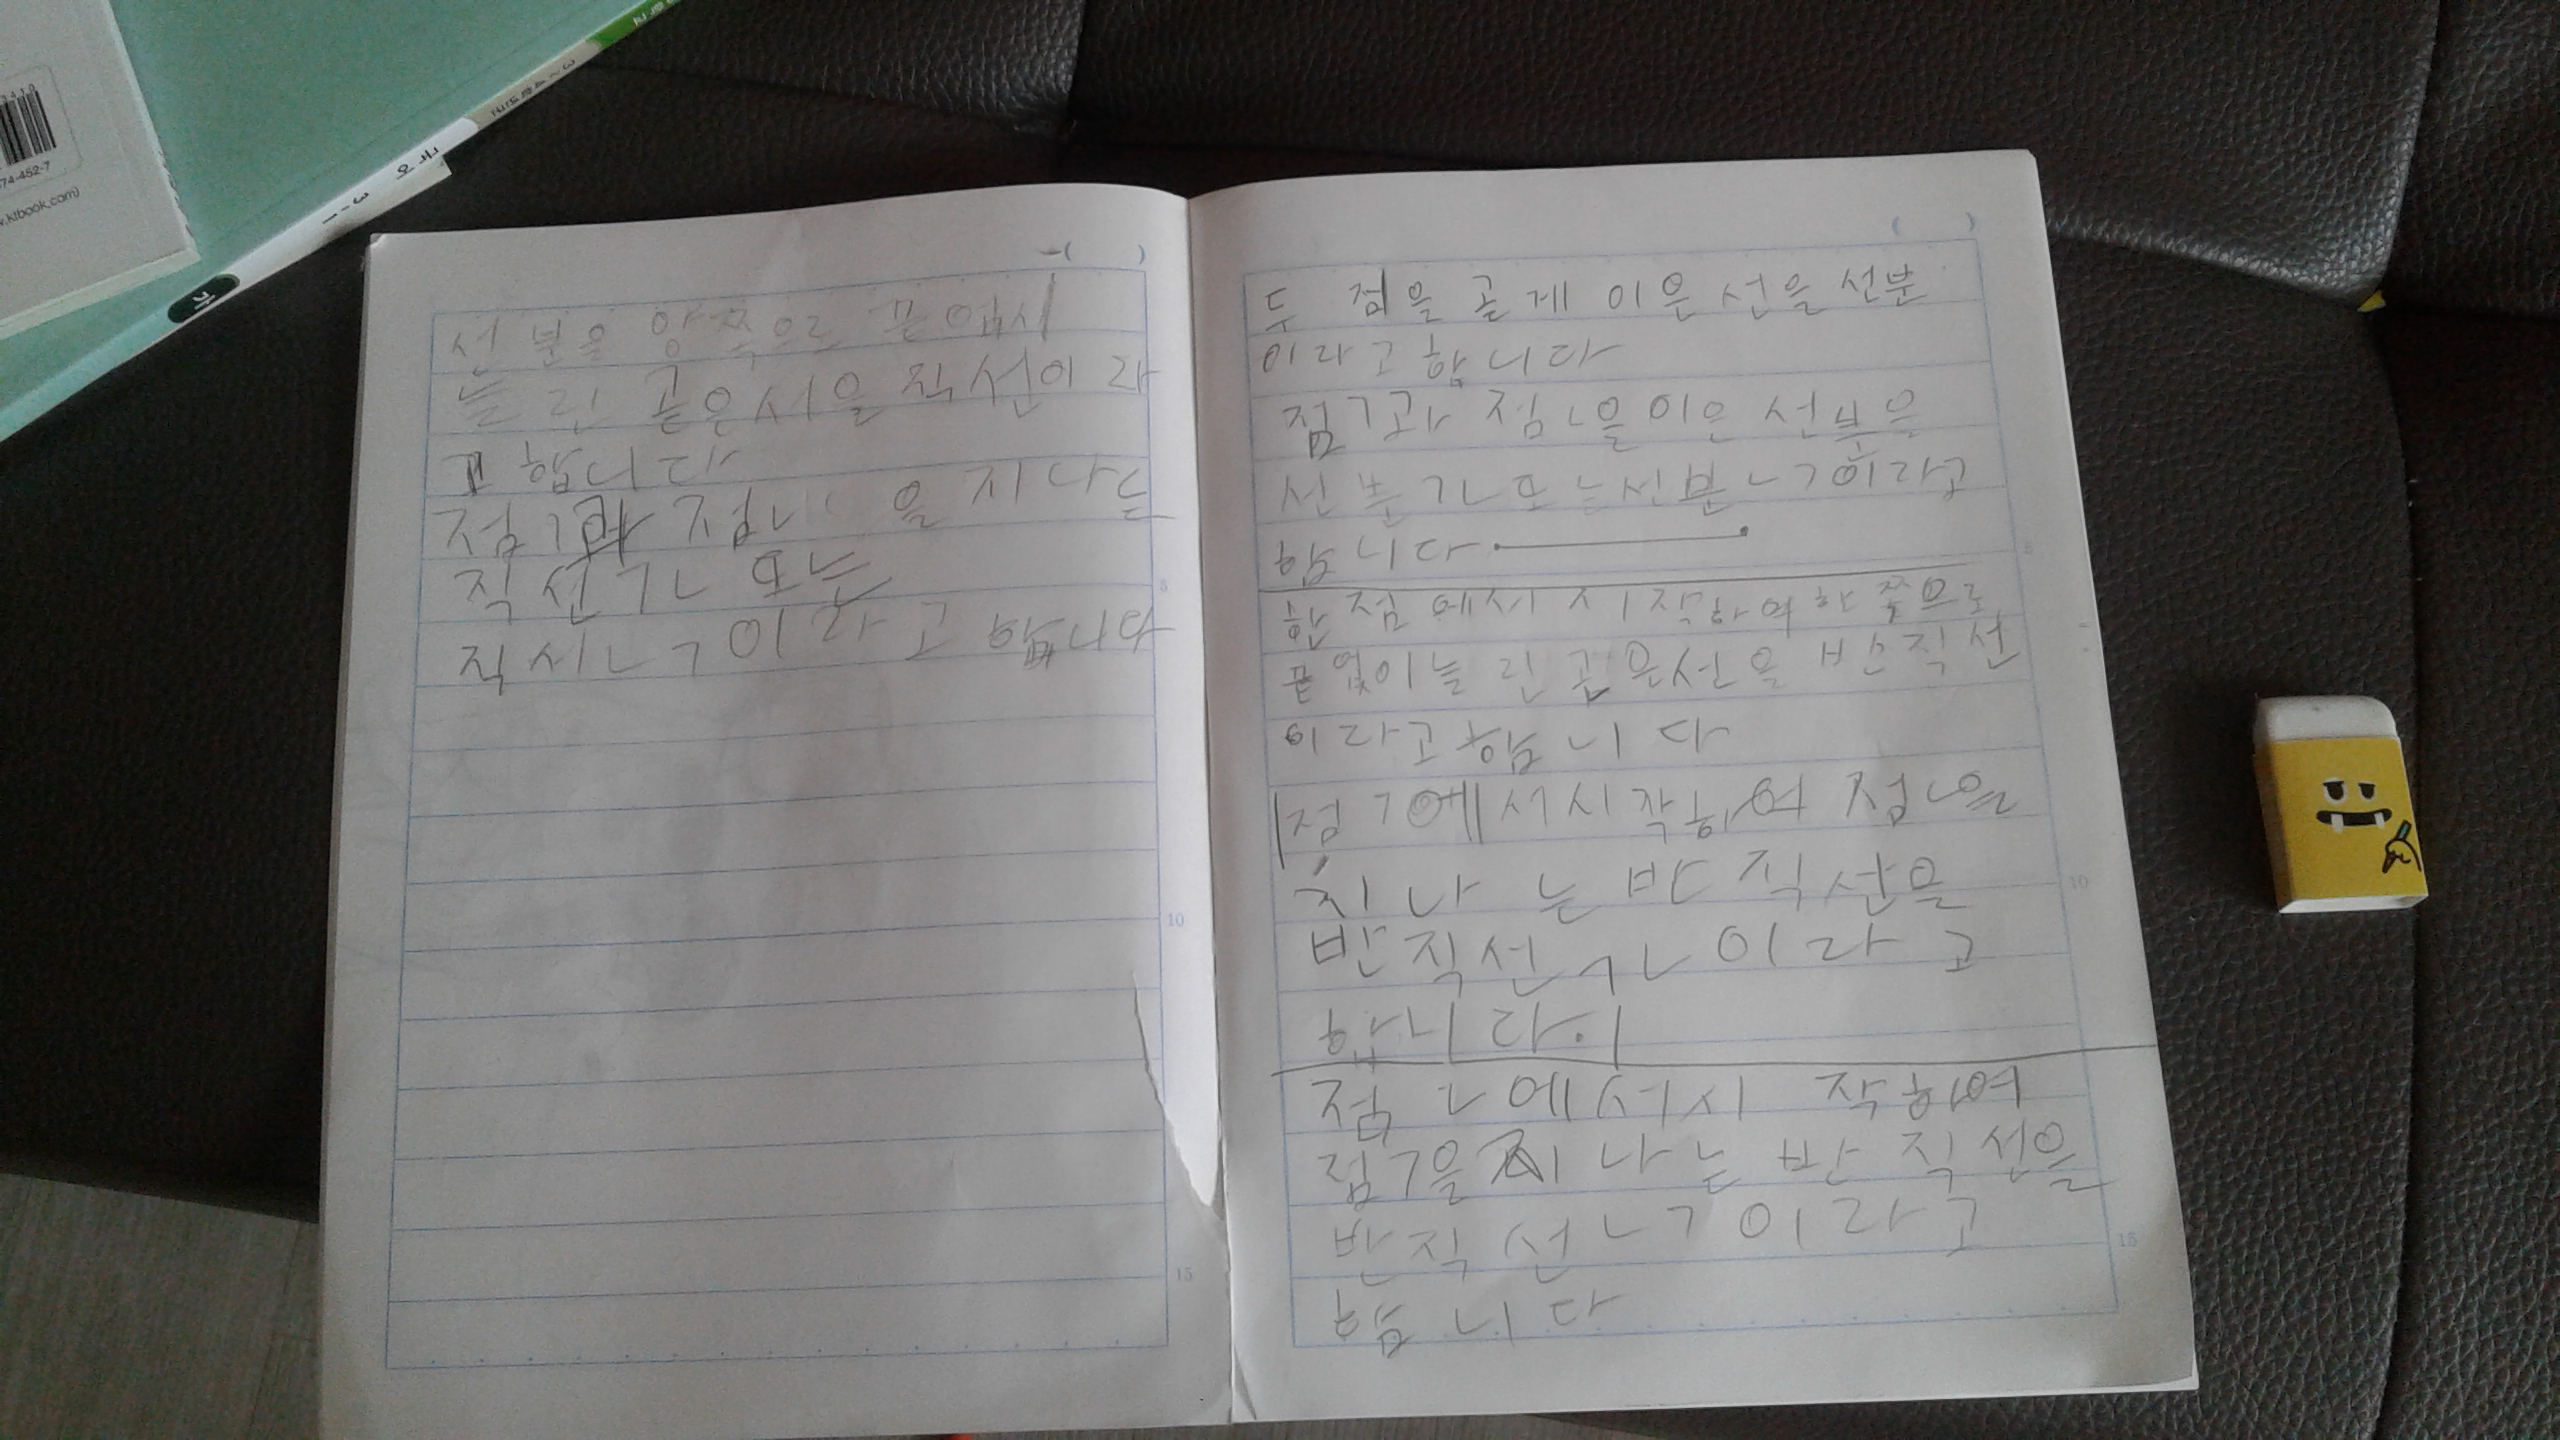 3410
74-452-7
w.ktbook.com)
3-1
선분을 양쪽으로 끝업시
늘린 곧은서을 직선이라
고 합니다
점ㄱ과 점ㄴ을 지나는
직선ㄱㄴ 또는
직시ㄴㄱ이라고 합니다
두 점을 곧게 이은 선을 선분
이라고 합니다
점ㄱ과 점ㄴ을 이은 선분을
선분ㄱㄴ또는선분ㄴㄱ이라고
합니다
한 점에서 시작하여 한쪽으로
끝없이늘린 곧은선을 반직선
이라고합니다
점ㄱ에서시작하여 점ㄴ을
지나는반직선을
반직선ㄱㄴ이라고
합니다.
점ㄴ에서시작하여
점ㄱ을지나는 반직선을
반직선ㄴㄱ이라고
합니다
5
10
15
5
10
15